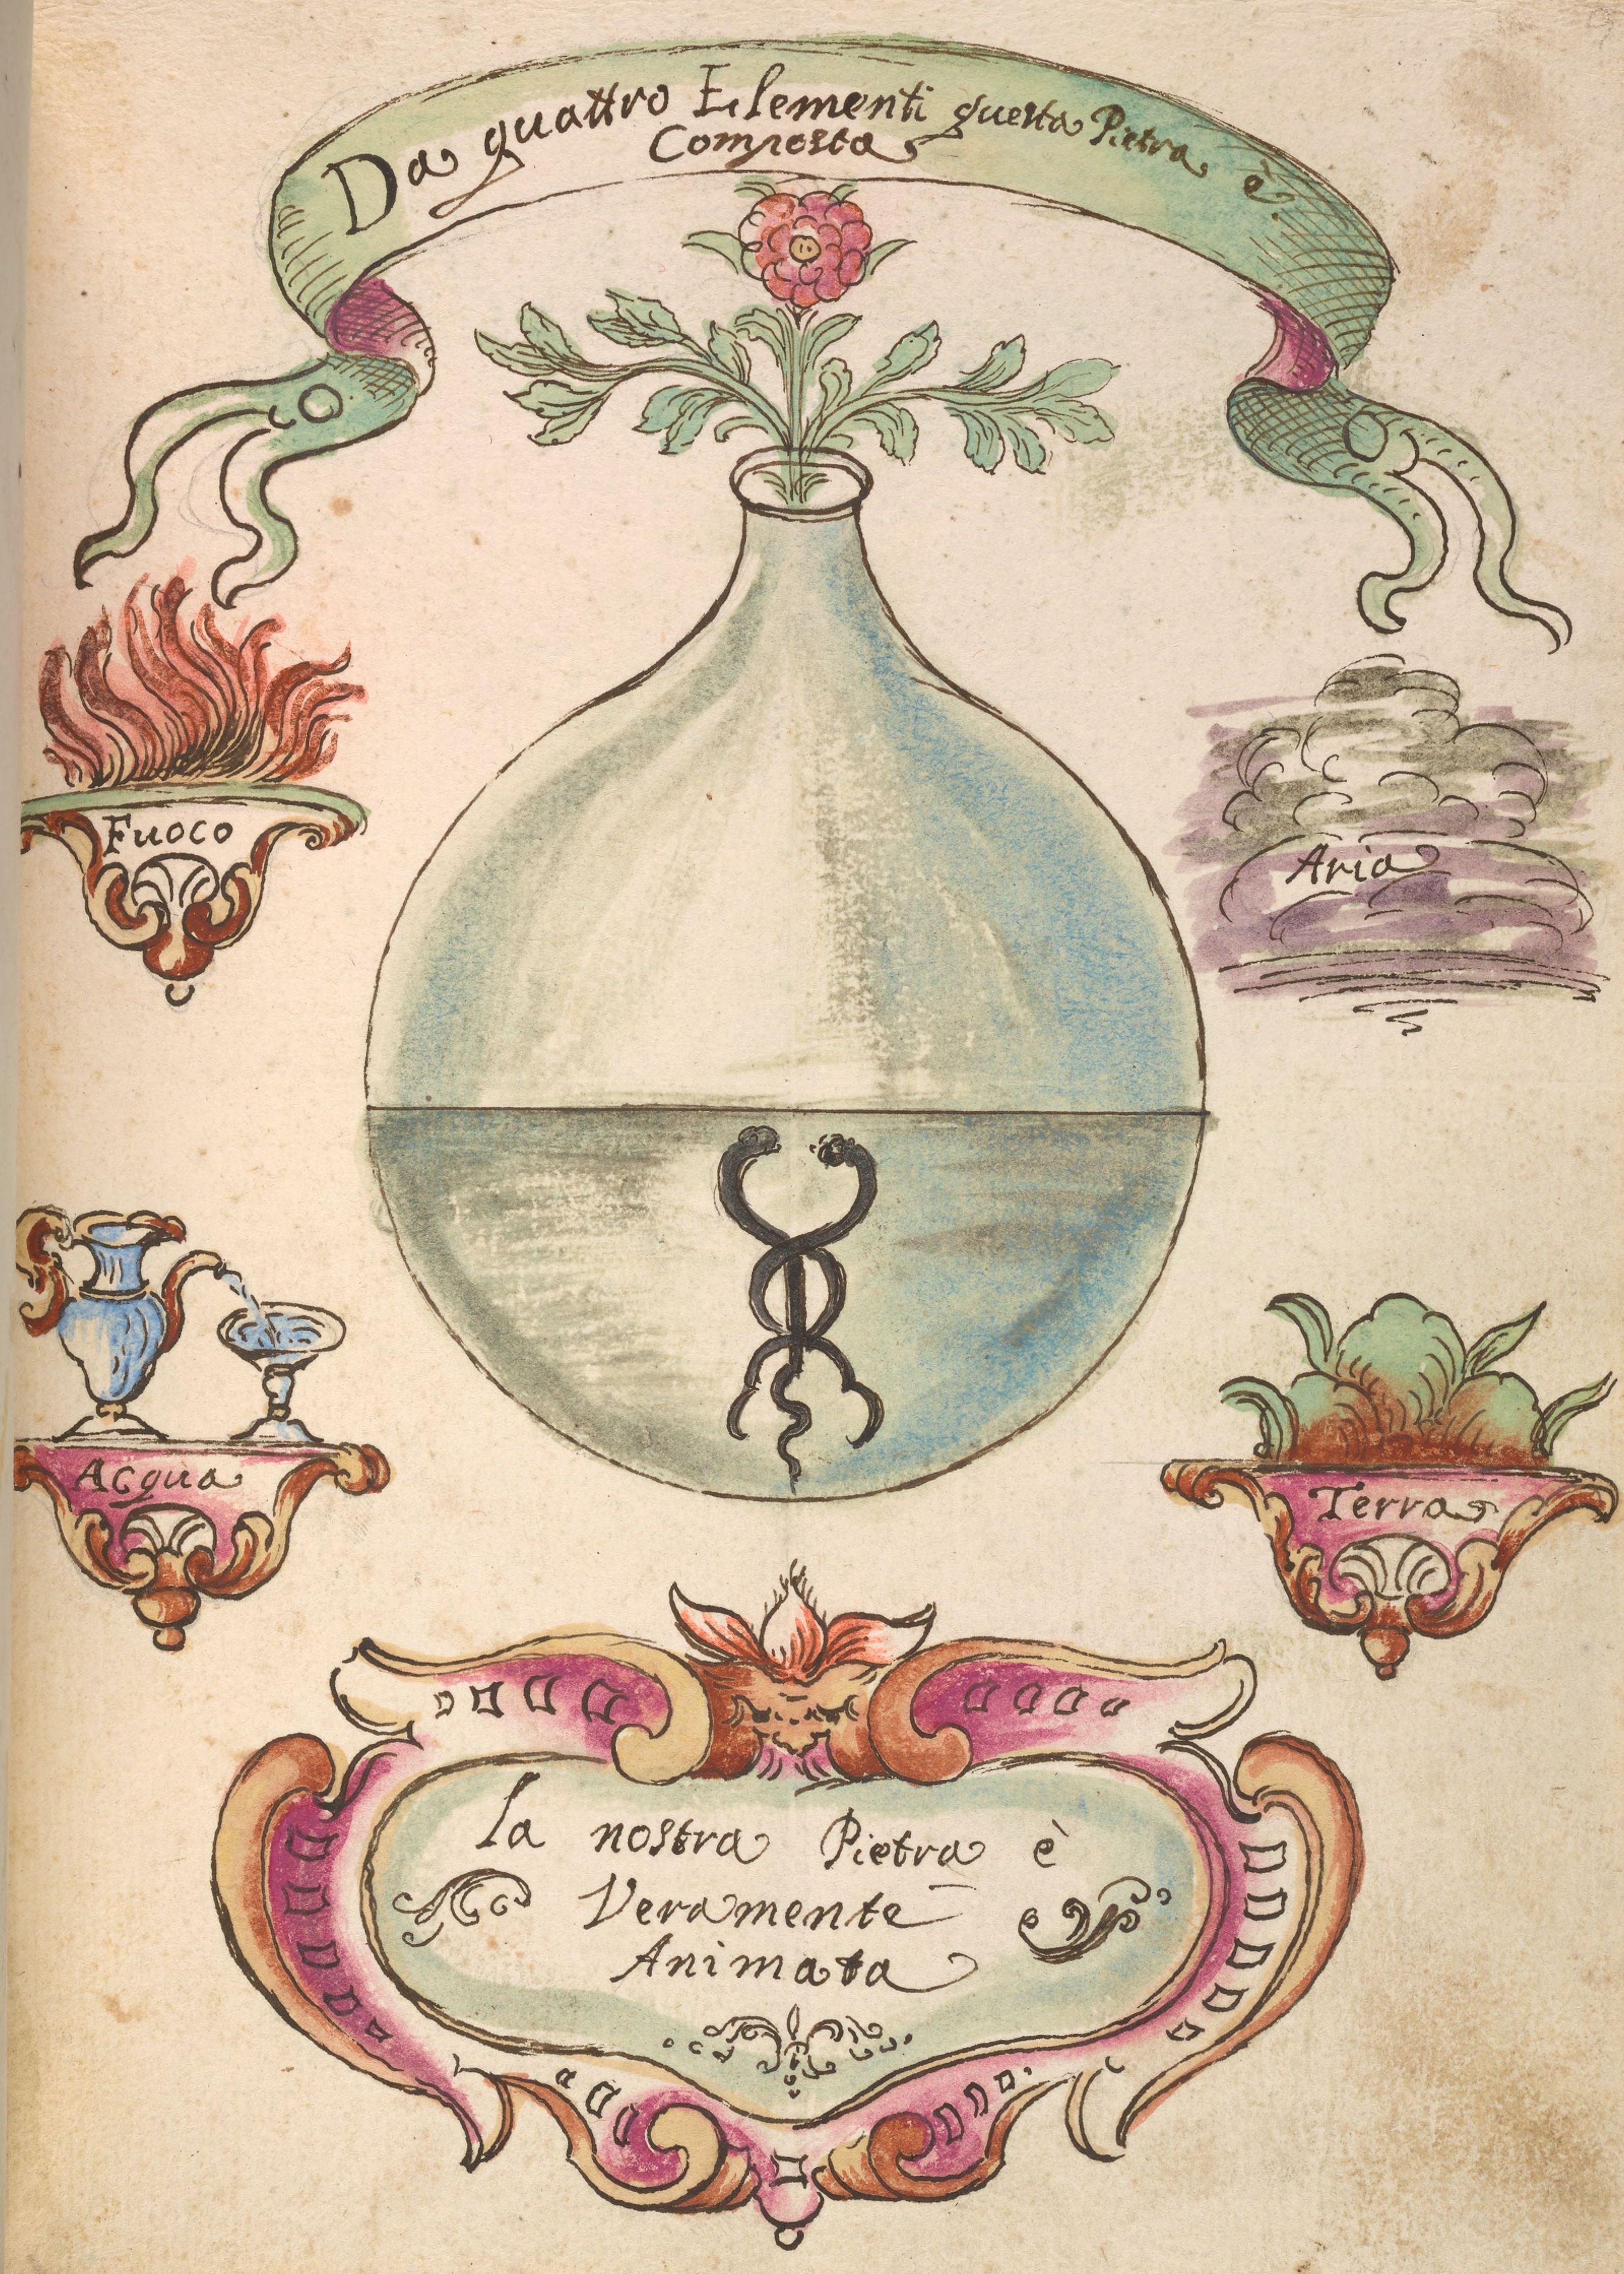 Da quattro Elementi questa Pietra è
Composta
Fuoco
Aria
Acqua
Terra
la nostra Pietra è
Veramente
Animata